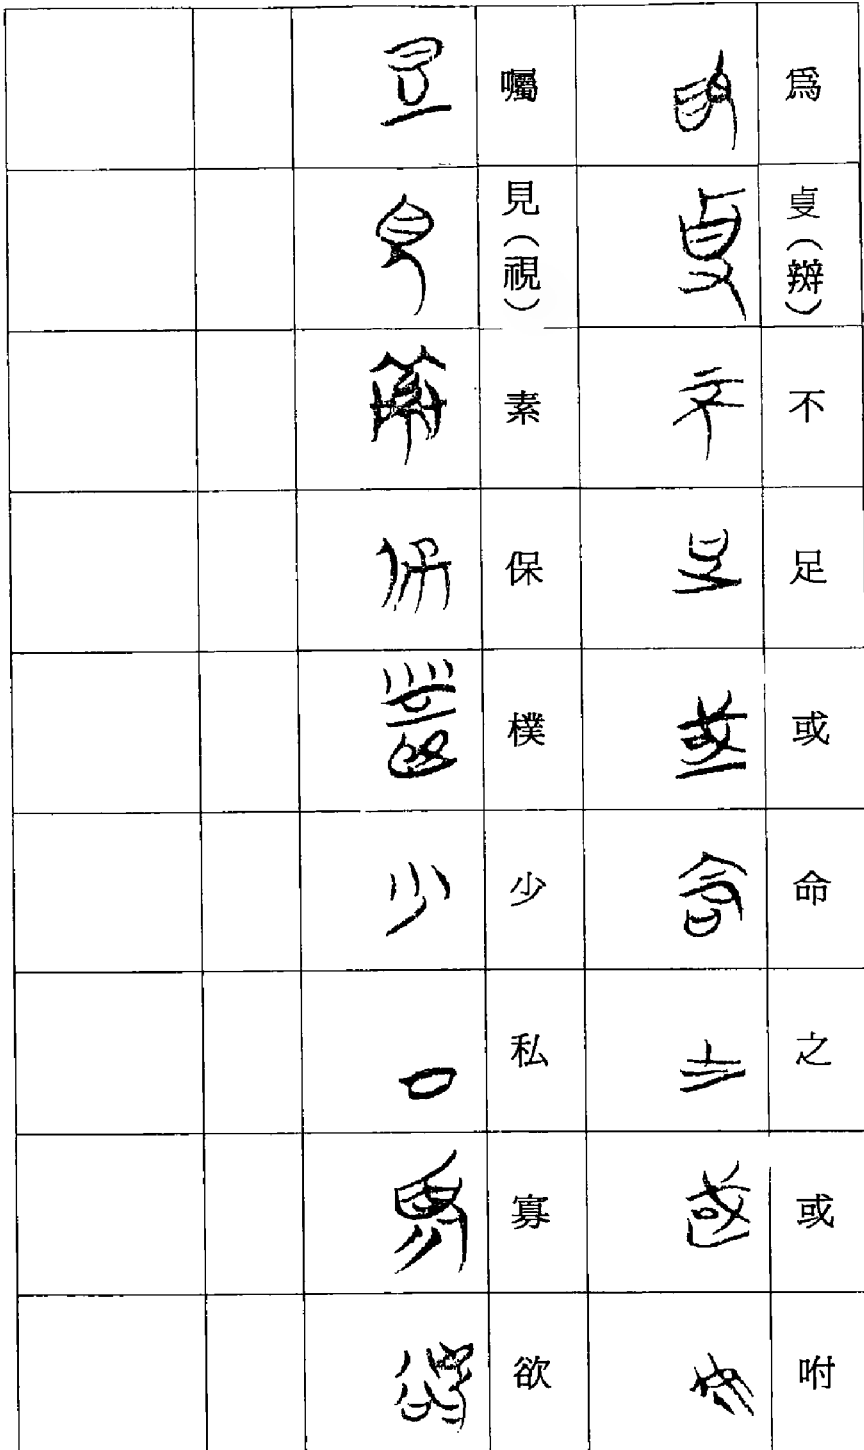 爲㕝(辯)不足或命之或咐
囑見(視)素保樸少私寡欲